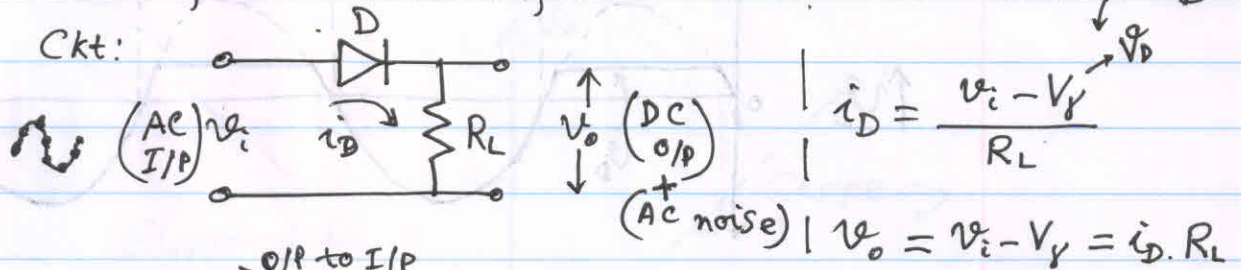 Ckt:
D
(AC I/P) v_i
i_D
R_L
v_o
(DC O/P)
+
(AC noise)
i_D = (v_i - V_γ) / R_L
v_D
v_o = v_i - V_γ = i_D . R_L
O/P to I/P